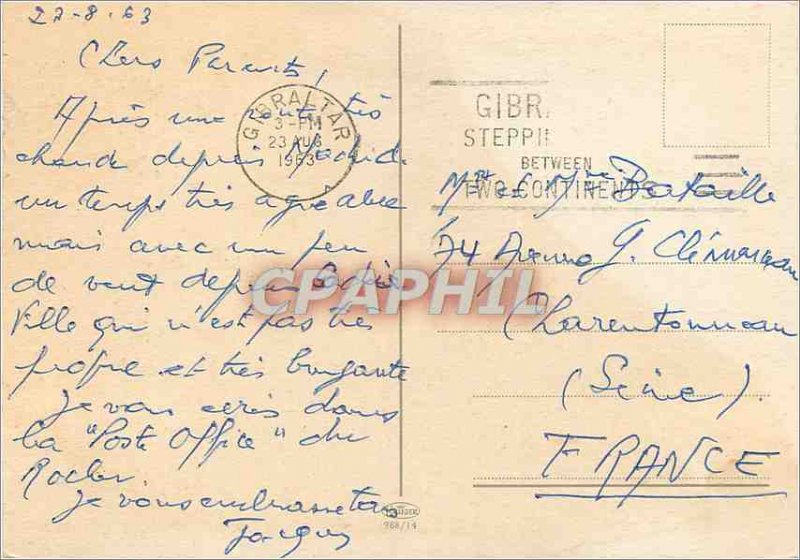 22-8-63
Chers Parents,
Après une route très
chaude depuis Madrid
un temps très agréable
mais avec un peu
de vent depuis Cadix
Ville qui n'est pas très
propre et très bruyante
Je vous écris dans
la "Poste Office" du
Rocher
Je vous embrasse tous
Jacques
GIBRALTAR
3-PM
23 AUG
1963
GIBR
STEPPI
BETWEEN
TWO CONTINENTS
Mr et Mme Bataille
74 Avenue G. Clémenceau
Charentonneau
(Seine).
FRANCE
CPAPHIL
968/14